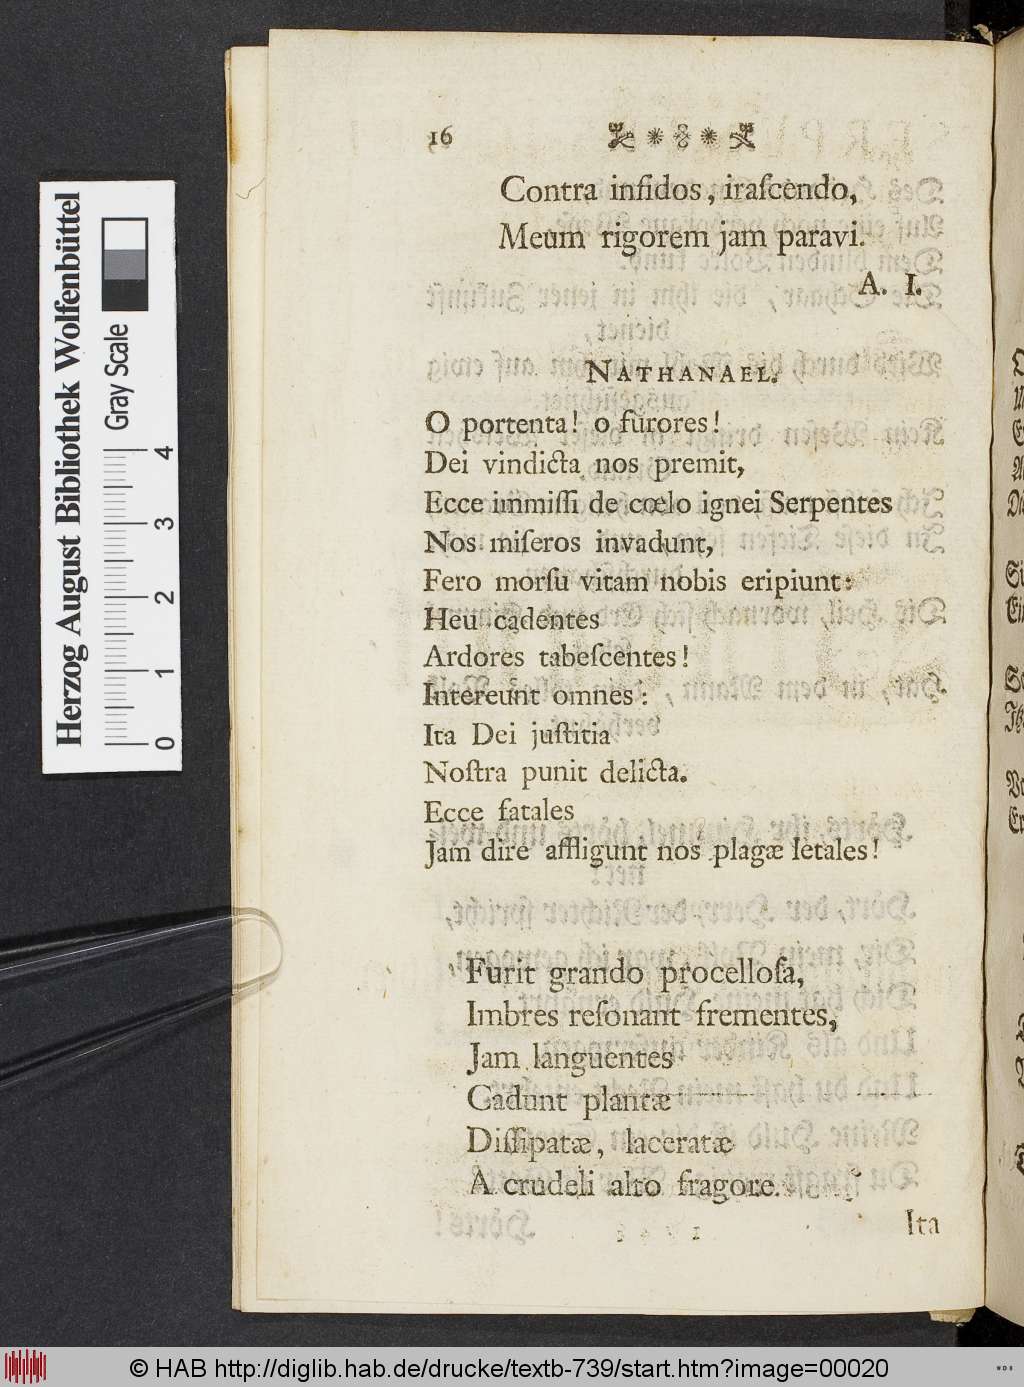 16
Contra infidos, iraſcendo,
Meum rigorem jam paravi.
A. I.
NATHANAEL.
O portenta! o furores!
Dei vindicta nos premit,
Ecce immiſſi de cœlo ignei Serpentes
Nos miſeros invadunt,
Fero morſu vitam nobis eripiunt:
Heu cadentes
Ardores tabeſcentes!
Intereunt omnes:
Ita Dei juſtitia
Noſtra punit delicta.
Ecce fatales
Jam dire affligunt nos plagæ letales!
Furit grando procelloſa,
Imbres reſonant frementes,
Jam languentes
Cadunt plantæ
Diſſipatæ, laceratæ
A crudeli alto fragore.
Ita
Herzog August Bibliothek Wolfenbüttel
Gray Scale
0 1 2 3 4
© HAB http://diglib.hab.de/drucke/textb-739/start.htm?image=00020